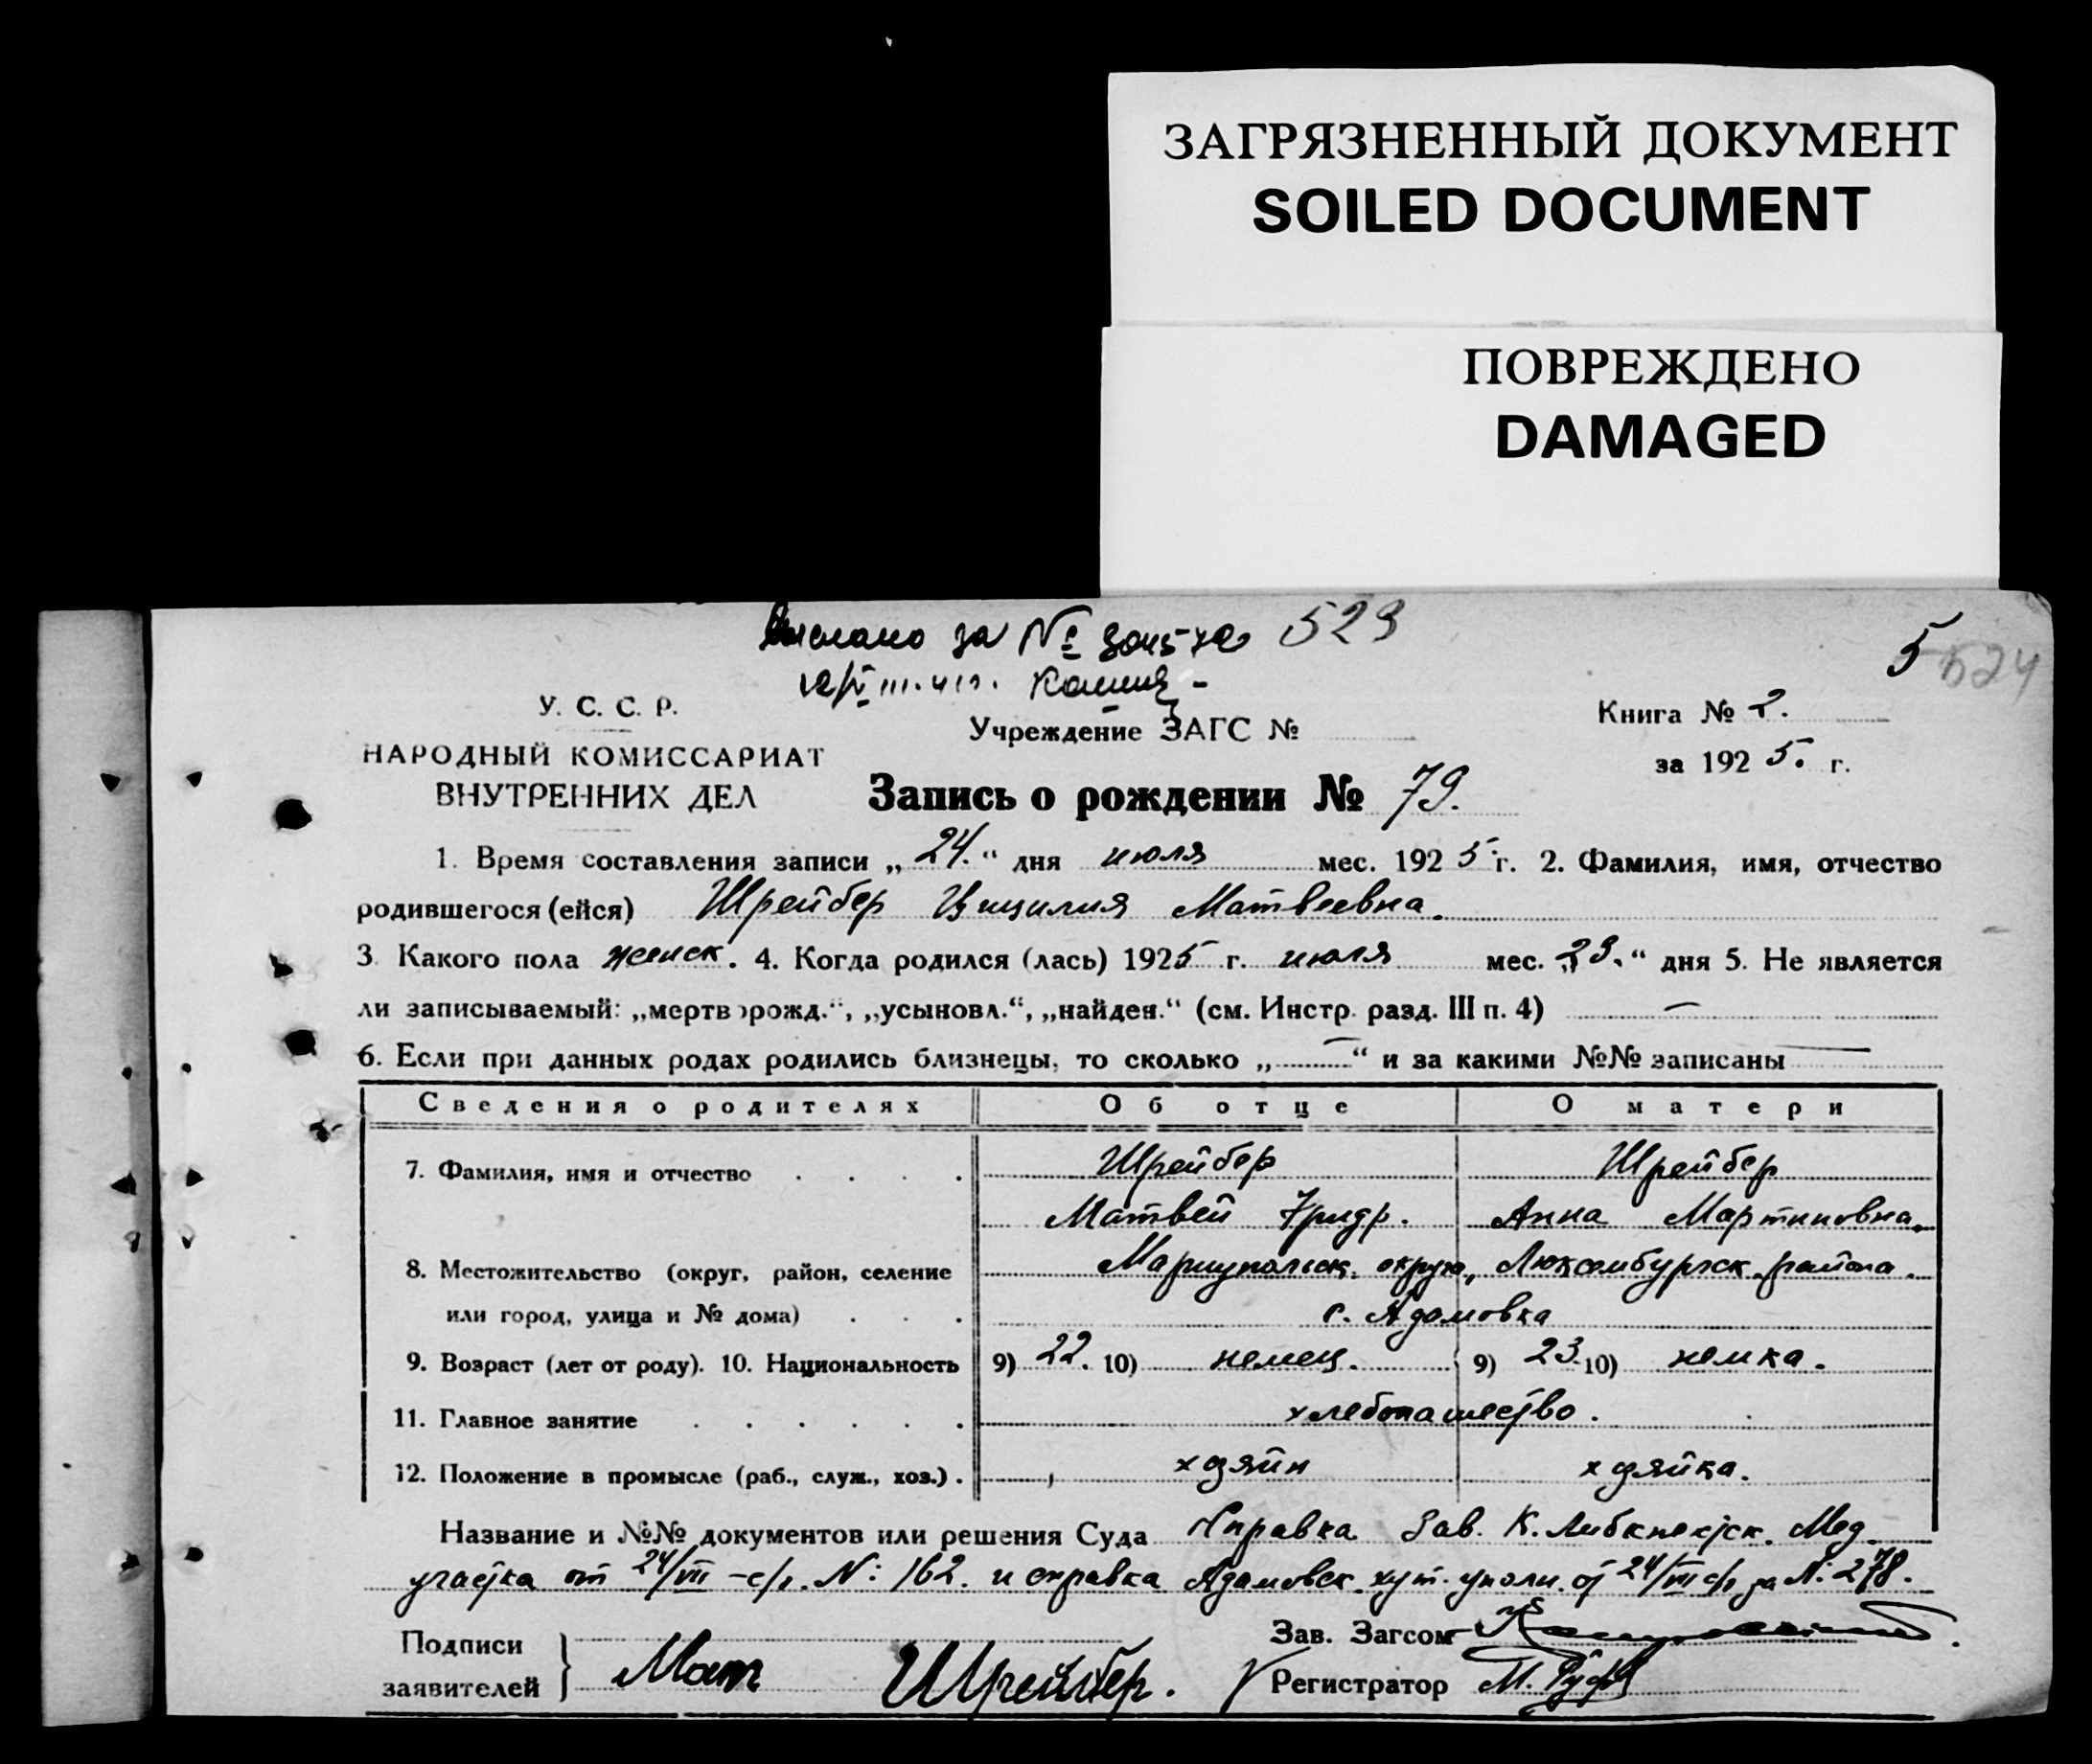 ЗАГРЯЗНЕННЫЙ ДОКУМЕНТ
SOILED DOCUMENT
ПОВРЕЖДЕНО
DAMAGED
за № 523
5 524
У. С. С. Р.
НАРОДНЫЙ КОМИССАРИАТ
ВНУТРЕННИХ ДЕЛ
Учреждение ЗАГС №
Книга № 2.
за 1925. г.
Запись о рождении № 79.
1. Время составления записи „24.“ дня июля мес. 1925 г. 2. Фамилия, имя, отчество
родившегося (ейся) Шрейбер Цицилия Матвеевна.
3. Какого пола женск. 4. Когда родился (лась) 1925 г. июля мес. „23.“ дня 5. Не является
ли записываемый: „мертворожд.“, „усыновл.“, „найден.“ (см. Инстр. разд. III п. 4) —
6. Если при данных родах родились близнецы, то сколько „—“ и за какими №№ записаны —
Сведения о родителях Об отце О матери
7. Фамилия, имя и отчество Шрейбер Шрейбер
Матвей Фридр. Анна Мартиновна.
8. Местожительство (округ, район, селение Мариупольск. округа, Люксембургск. района.
или город, улица и № дома) с. Адамовка
9. Возраст (лет от роду). 10. Национальность 9) 22. 10) немец. 9) 23. 10) немка.
11. Главное занятие хлебопашество.
12. Положение в промысле (раб., служ., хоз.) . хозяйн хозяйка.
Название и №№ документов или решения Суда Справка Зав. К. Либкнехтск. Мед.
участка от 24/VII – с/г. №: 162. и справка Адамовск. хут. уполн. от 24/VII с/г за №: 278.
Подписи
заявителей } Мат Шрейбер.
Зав. Загсом
Регистратор М.